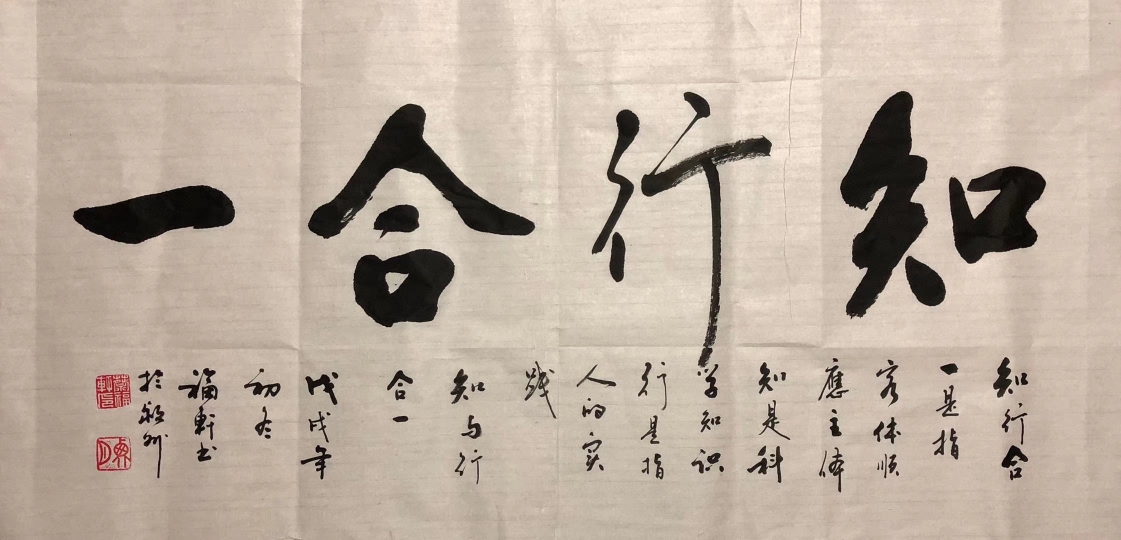 知行合一
知行合
一是指
客体顺
應主体
知是科
学知识
行是指
人的实
践
知与行
合一
戊戌年
初冬
福軒书
於郑州